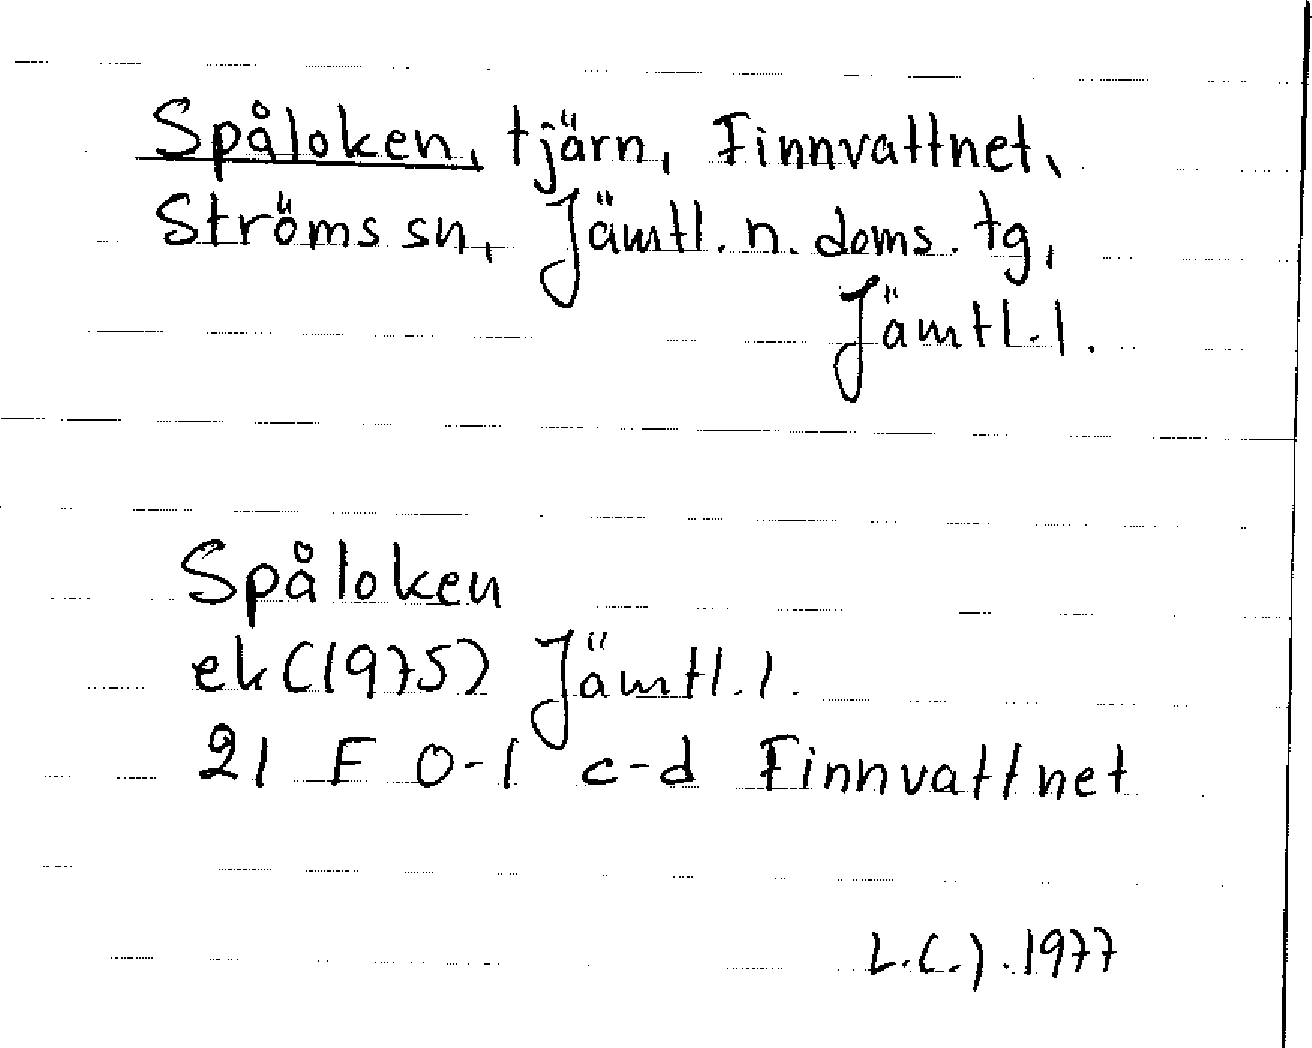 Spåloken, tjärn, Finnvattnet,
Ströms sn, Jämtl. n. doms. tg,
Jämtl. l.
Spåloken
ek (1975) Jämtl. l.
21 F 0-1 c-d Finnvattnet
1977